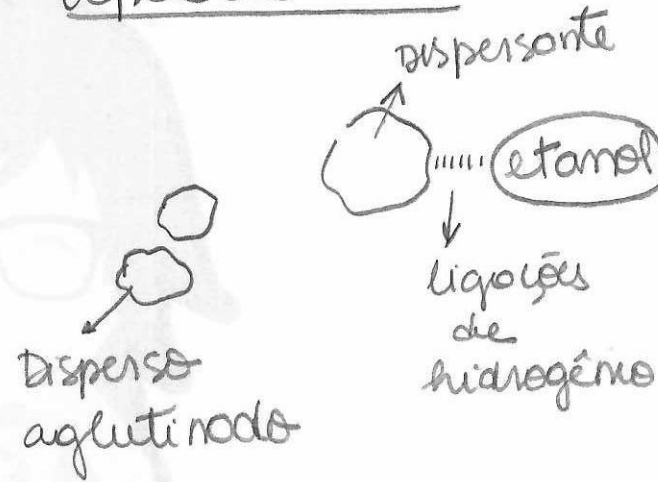 Dispersante
etanol
ligações
de
hidrogênio
Disperso
aglutinado